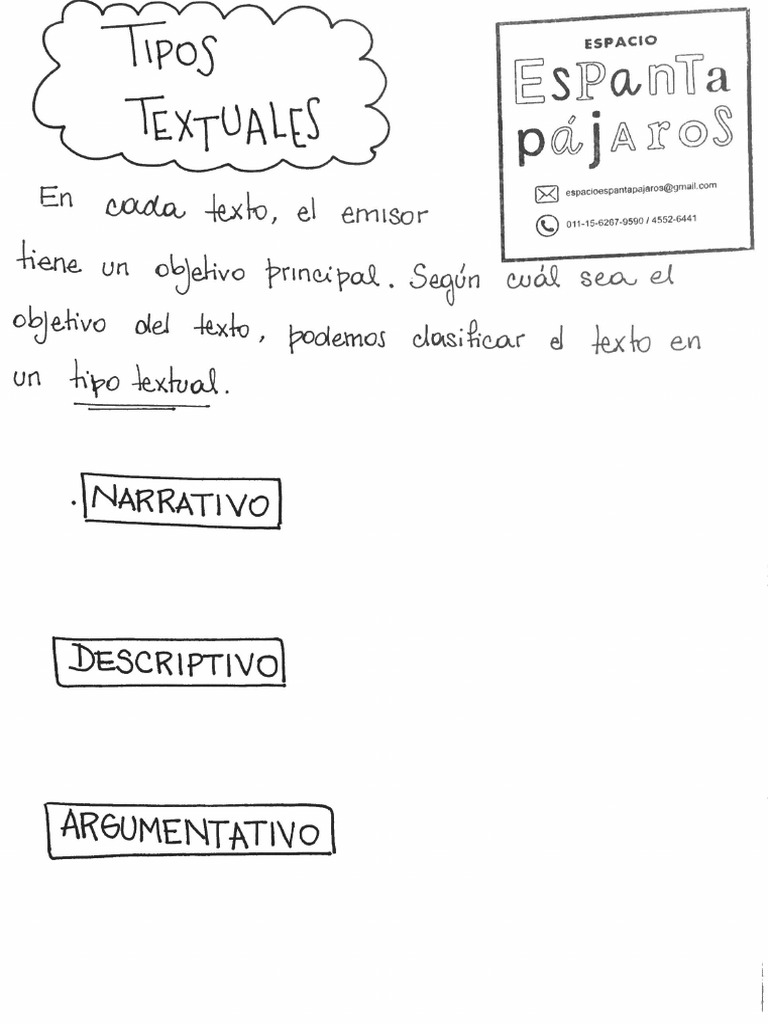 TIPOS
TEXTUALES
ESPACIO
EsPanTa
pájaros
espacioespantapajaros@gmail.com
011-15-6267-9590 / 4552-6441
En cada texto, el emisor
tiene un objetivo principal. Según cuál sea el
objetivo del texto, podemos clasificar el texto en
un tipo textual.
. NARRATIVO
DESCRIPTIVO
ARGUMENTATIVO